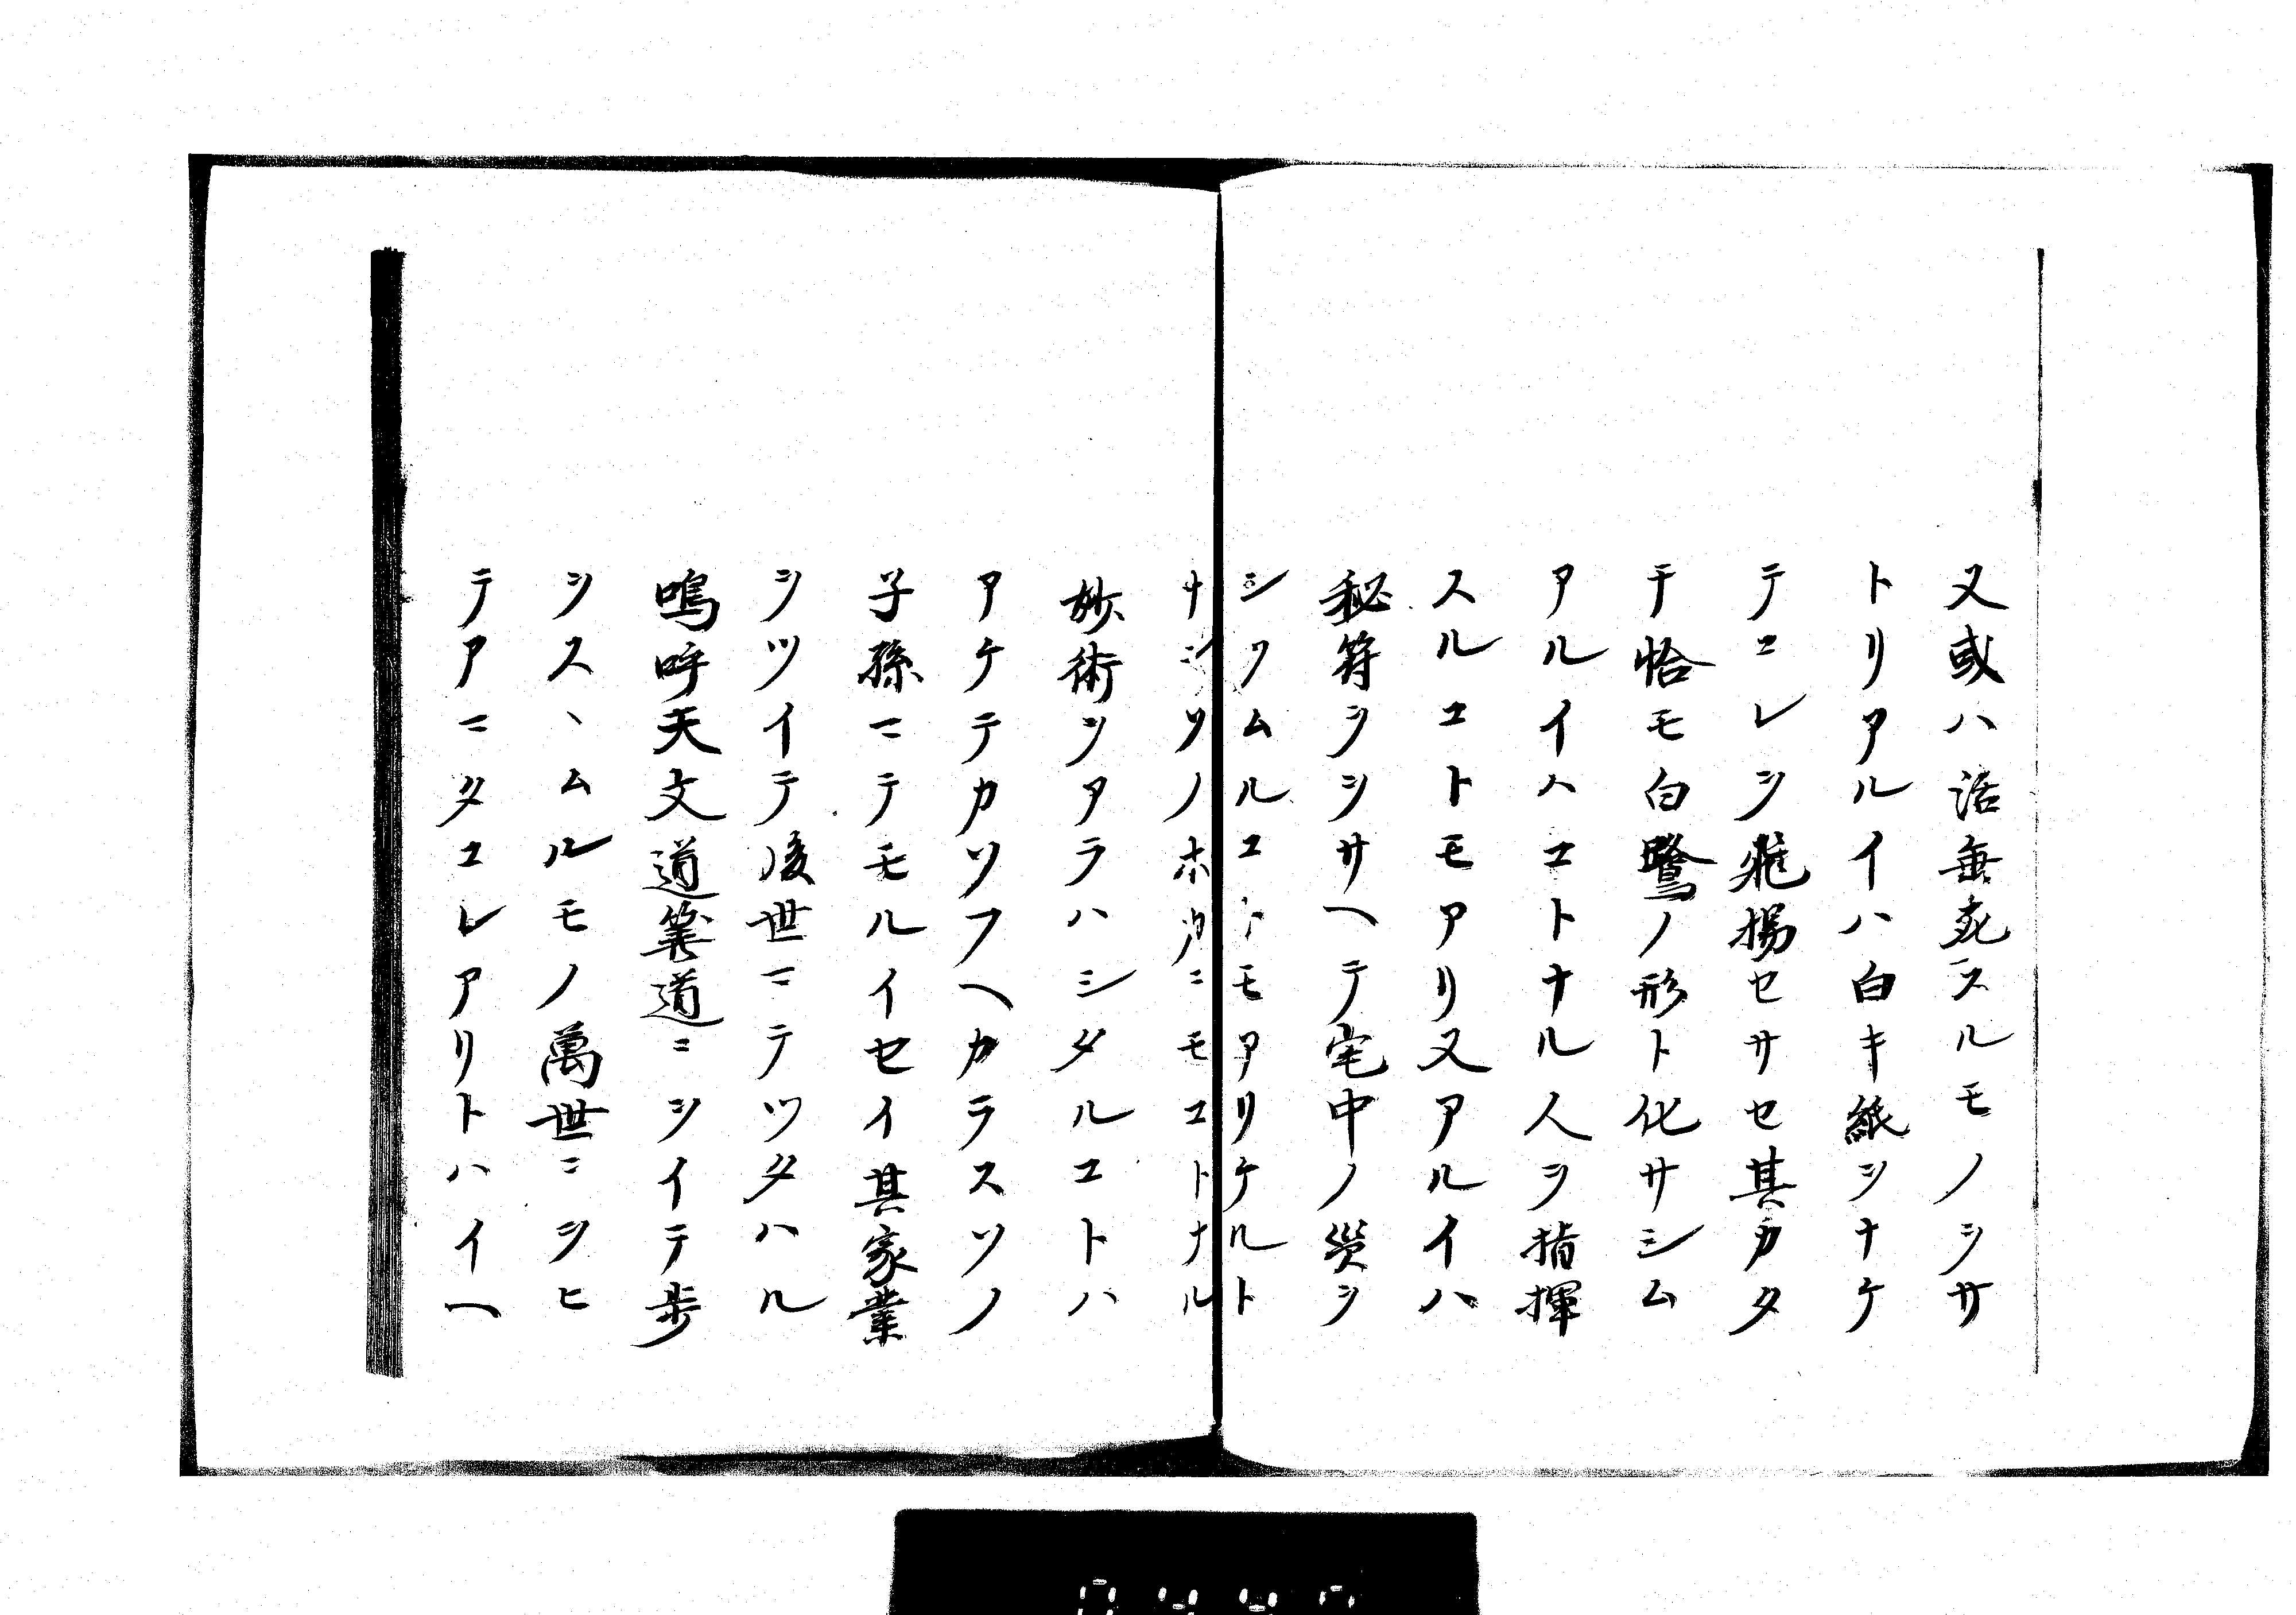 又或ハ活無死スルモノヲサ
トリアルイハ白キ紙ヲナケ
テコレヲ飛揚セサセ其カタ
チ恰モ白鷺ノ形ト化サシム
アルイハコトナル人ヲ指揮
スルコトモアリ又アルイハ
秘符ヲヲサヘテ宅中ノ災ヲ
シリムルコトモアリケルト
ナンソノホカニモコトナル
妙術ヲアラハシタルコトハ
アケテカソフヘカラスソノ
子孫ニテモルイセイ其家業
ヲツイテ後世ニテツタハル
嗚呼天文道筭道ニヲイテ歩
ヲスヽムルモノ萬世ニヲヒ
テアニタコレアリトハイヘ